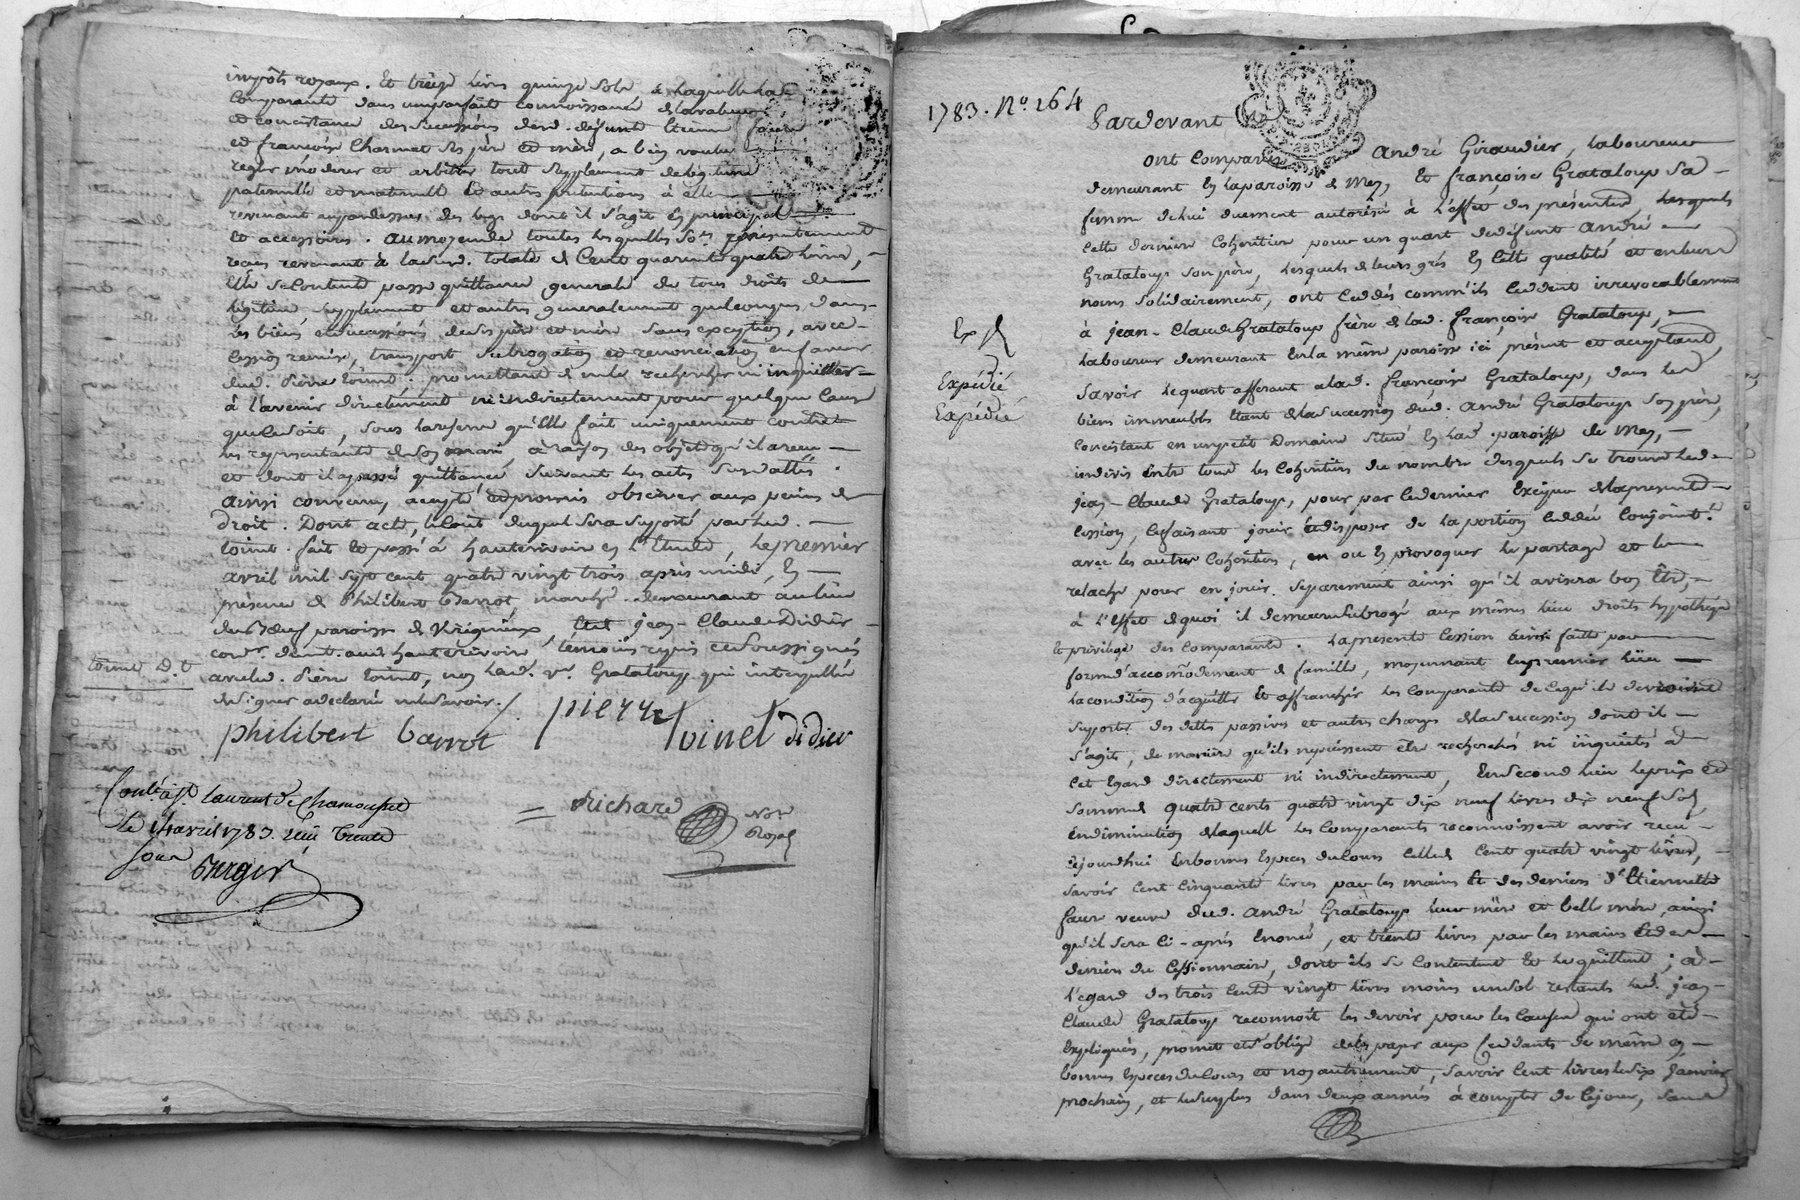 impôts royaux. Et treize livres quinze sols à laquelle lad.
Comparante dans un parfait connoissance de la valeur
et consistance des successions desd. défunt Etienne faure
et françoise Charmet ses père et mère, a bien voulu
regler modérer et arbitrer tout supplement de legitime
paternelle et maternelle et autres prétentions à elle
revenant aujourdessus des legs dont il s'agit en principal
et accessoires. au moyen de toutes lesquelles somes présentement
reçues revenant à la susd. totale de Cent quarente quatre livres,
elle se Contente passe quittance generale de tous droits de
legitime supplement et autres generalement quelconques dans
les biens et successions de ses père et mère sans exception, avec
Cession remise, transport subrogation et renonciation en faveur
dud. Pierre toinet. promettant de ne le rechercher ni inquietter
à l'avenir directement ni indirectement pour quelque Cause
que ce soit, sous la reserve qu'elle fait uniquement contre
les représentants de son mari, à raison des objets qu'il a reçu
et dont il a passé quittance suivant les actes susdattés.
ainsi convenu, accepté et promis observer aux peines de
droit. Dont acte, le Coût duquel sera suporté par led.
toinet. fait et passé à hauterivoire en l'Etude, le premier
avril mil sept cent quatre vingt trois après midi, En
présence de Philibert Barrot, march. demeurant au lieu
du paroisse de Virigneux, Et jean-Claude Didier
cord. demt. aud. hauterivoire témoins requis et soussignés
avec led. Pierre toinet, non lad. ve. Grataloup qui interpellée
de signer a declaré ne le savoir.
toinet D. t
philibert barrot pierre toinel didier
Contlé à St. Laurent de Chamousset
le 14 avril 1783. reçu trente
sous
Berger
Richard Nore
Royal
1783. No. 164
Pardevant
ont Comparu André Giraudier, laboureur
demeurant En la paroisse de Mey, Et françoise Grataloup sa
femme de lui duement autorisée à l'effet des présentes, lesquels
Cette derniere Cohéritiere pour un quart de défunt André
Grataloup son père, lesquels de leurs grés En cette qualité et en leurs
noms solidairement, ont Cedés comm'ils Cedent irrevocablement
à jean-Claude Grataloup frère de lad. françoise Grataloup,
laboureur demeurant En la même paroisse ici présent et acceptant,
Savoir le quart afferant a lad. françoise Grataloup, dans les
Exp
Expédié
Expédié
biens immeubles étant de la succession dud. André Grataloup son père,
Consistant en un petit Domaine situé En lad. paroisse de Mey,
indivis entre tous les Cohéritiers du nombre desquels se trouve led.
jean-Claude Grataloup, pour par Ce dernier Exciper de la présente
Cession, Ce faisant jouir et disposer de la portion Cedée Conjointt.
avec les autres Cohéritiers, en ou En provoquer le partage et le
relache pour en jouir séparement ainsi qu'il avisera bon Etre,
à l'effet de quoi il demeure subrogé aux mêmes lieu droits hypothéque
et privilege des Comparants. La présente Cession ainsi faite par
forme d'accomodement de famille, moyennant En premier lieu
la condition d'acquitter Et affranchir les Comparants de ce qu'ils devroient
suporter des dettes passives et autres charges de la succession dont il
s'agit, de maniere qu'ils ne puissent être recherchés ni inquietés à
Cet Egard directement ni indirectement, En second lieu le prix et
somme de quatre cents quatre vingt dix neuf livres dix neuf sols,
En diminution de laquelle les Comparants reconnoissent avoir reçu
cejourdhui En bonnes Especes de Cours Celle de Cent quatre vingt livres,
savoir Cent Cinquante livres par les mains Et des deniers d'Etiennette
faure veuve dud. André Grataloup leur mère et belle mère, ainsi
qu'il sera Ci-après Enoncé, et trente livres par les mains Et des
deniers du Cessionnaire, dont ils se Contentent Et le quittent; à
l'égard des trois Cents vingt livres moins un sol restants led. jean
Claude Grataloup reconnoit les devoir pour les Causes qui ont été
Expliquées, promet et s'oblige de les payer aux Cedants de même en
bonnes Especes de Cours et non autrement, savoir Cent livres le six Janvier
prochain, et le surplus dans deux années à compter de Ce jour, sans